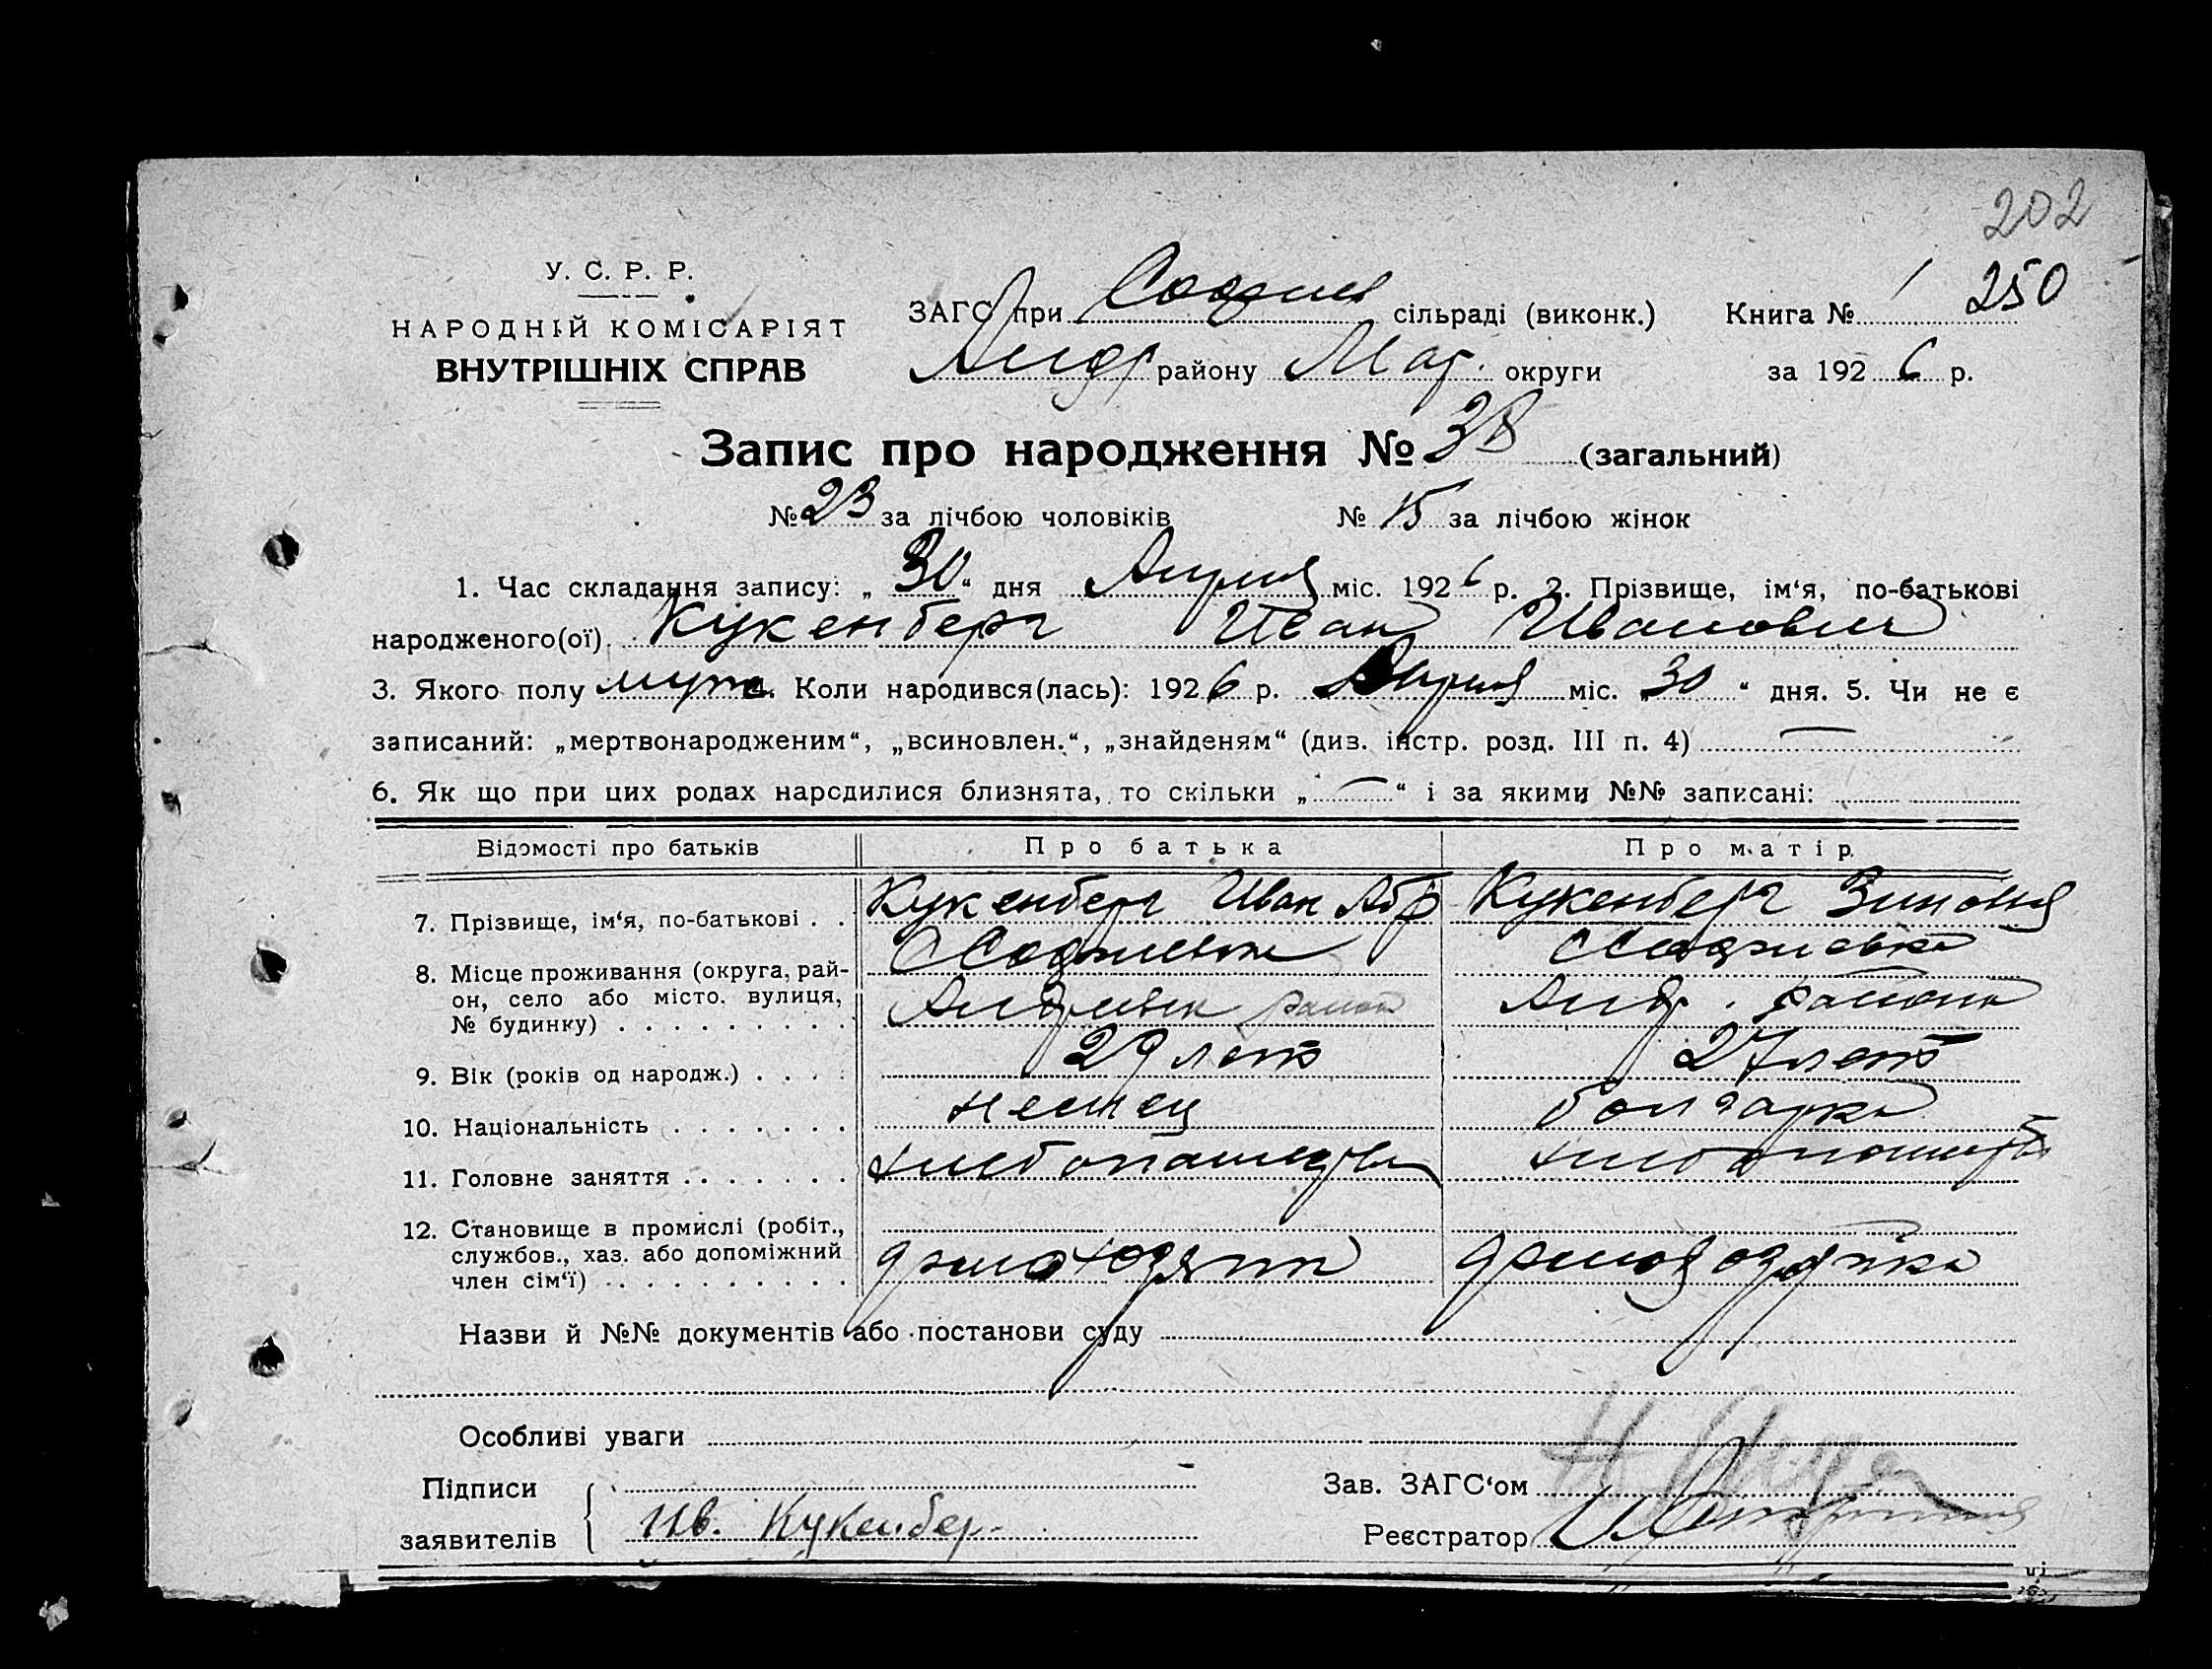 202
250
У. С. Р. Р.
НАРОДНІЙ КОМІСАРІЯТ
ВНУТРІШНІХ СПРАВ
ЗАГС при Софиев сільраді (виконк.) Книга № 1
Андр району Мар. округи за 1926 р.
Запис про народження № 38 (загальний)
№ 23 за лічбою чоловіків № 15 за лічбою жінок
1. Час складання запису: „30“ дня Апреля міс. 1926 р. 2. Прізвище, ім‘я, по-батькові
народженого(ої) Кукенберг Иван Иванович
3. Якого полу муж 4. Коли народився(лась): 1926 р. Апреля міс. „30“ дня. 5. Чи не є
записаний: „мертвонародженим“, „всиновлен.“, „знайденям“ (див. інстр. розд. III п. 4) —
6. Як що при цих родах народилися близнята, то скільки „—“ і за якими №№ записані:
Відомості про батьків Про батька Про матір
7. Прізвище, ім‘я, по-батькові . . Кукенберг Иван Абр Кукенберг
8. Місце проживання (округа, рай-
он, село або місто, вулиця,
№ будинку) . . . . . . . . .
с Софиевка с Софиевка
район Андр. района
9. Вік (років од народж.) . . . . 29 лет 27 лет
10. Національність . . . . . . . немец болгарка
11. Головне заняття . . . . . . . хлебопашество хлебопашество
12. Становище в промислі (робіт.,
службов., хаз. або допоміжний
член сім‘ї) . . . . . . . . . .
Назви й №№ документів або постанови суду
Особливі уваги
Підписи
заявителів
Ив. Кукенбер
Зав. ЗАГС‘ом
Реєстратор